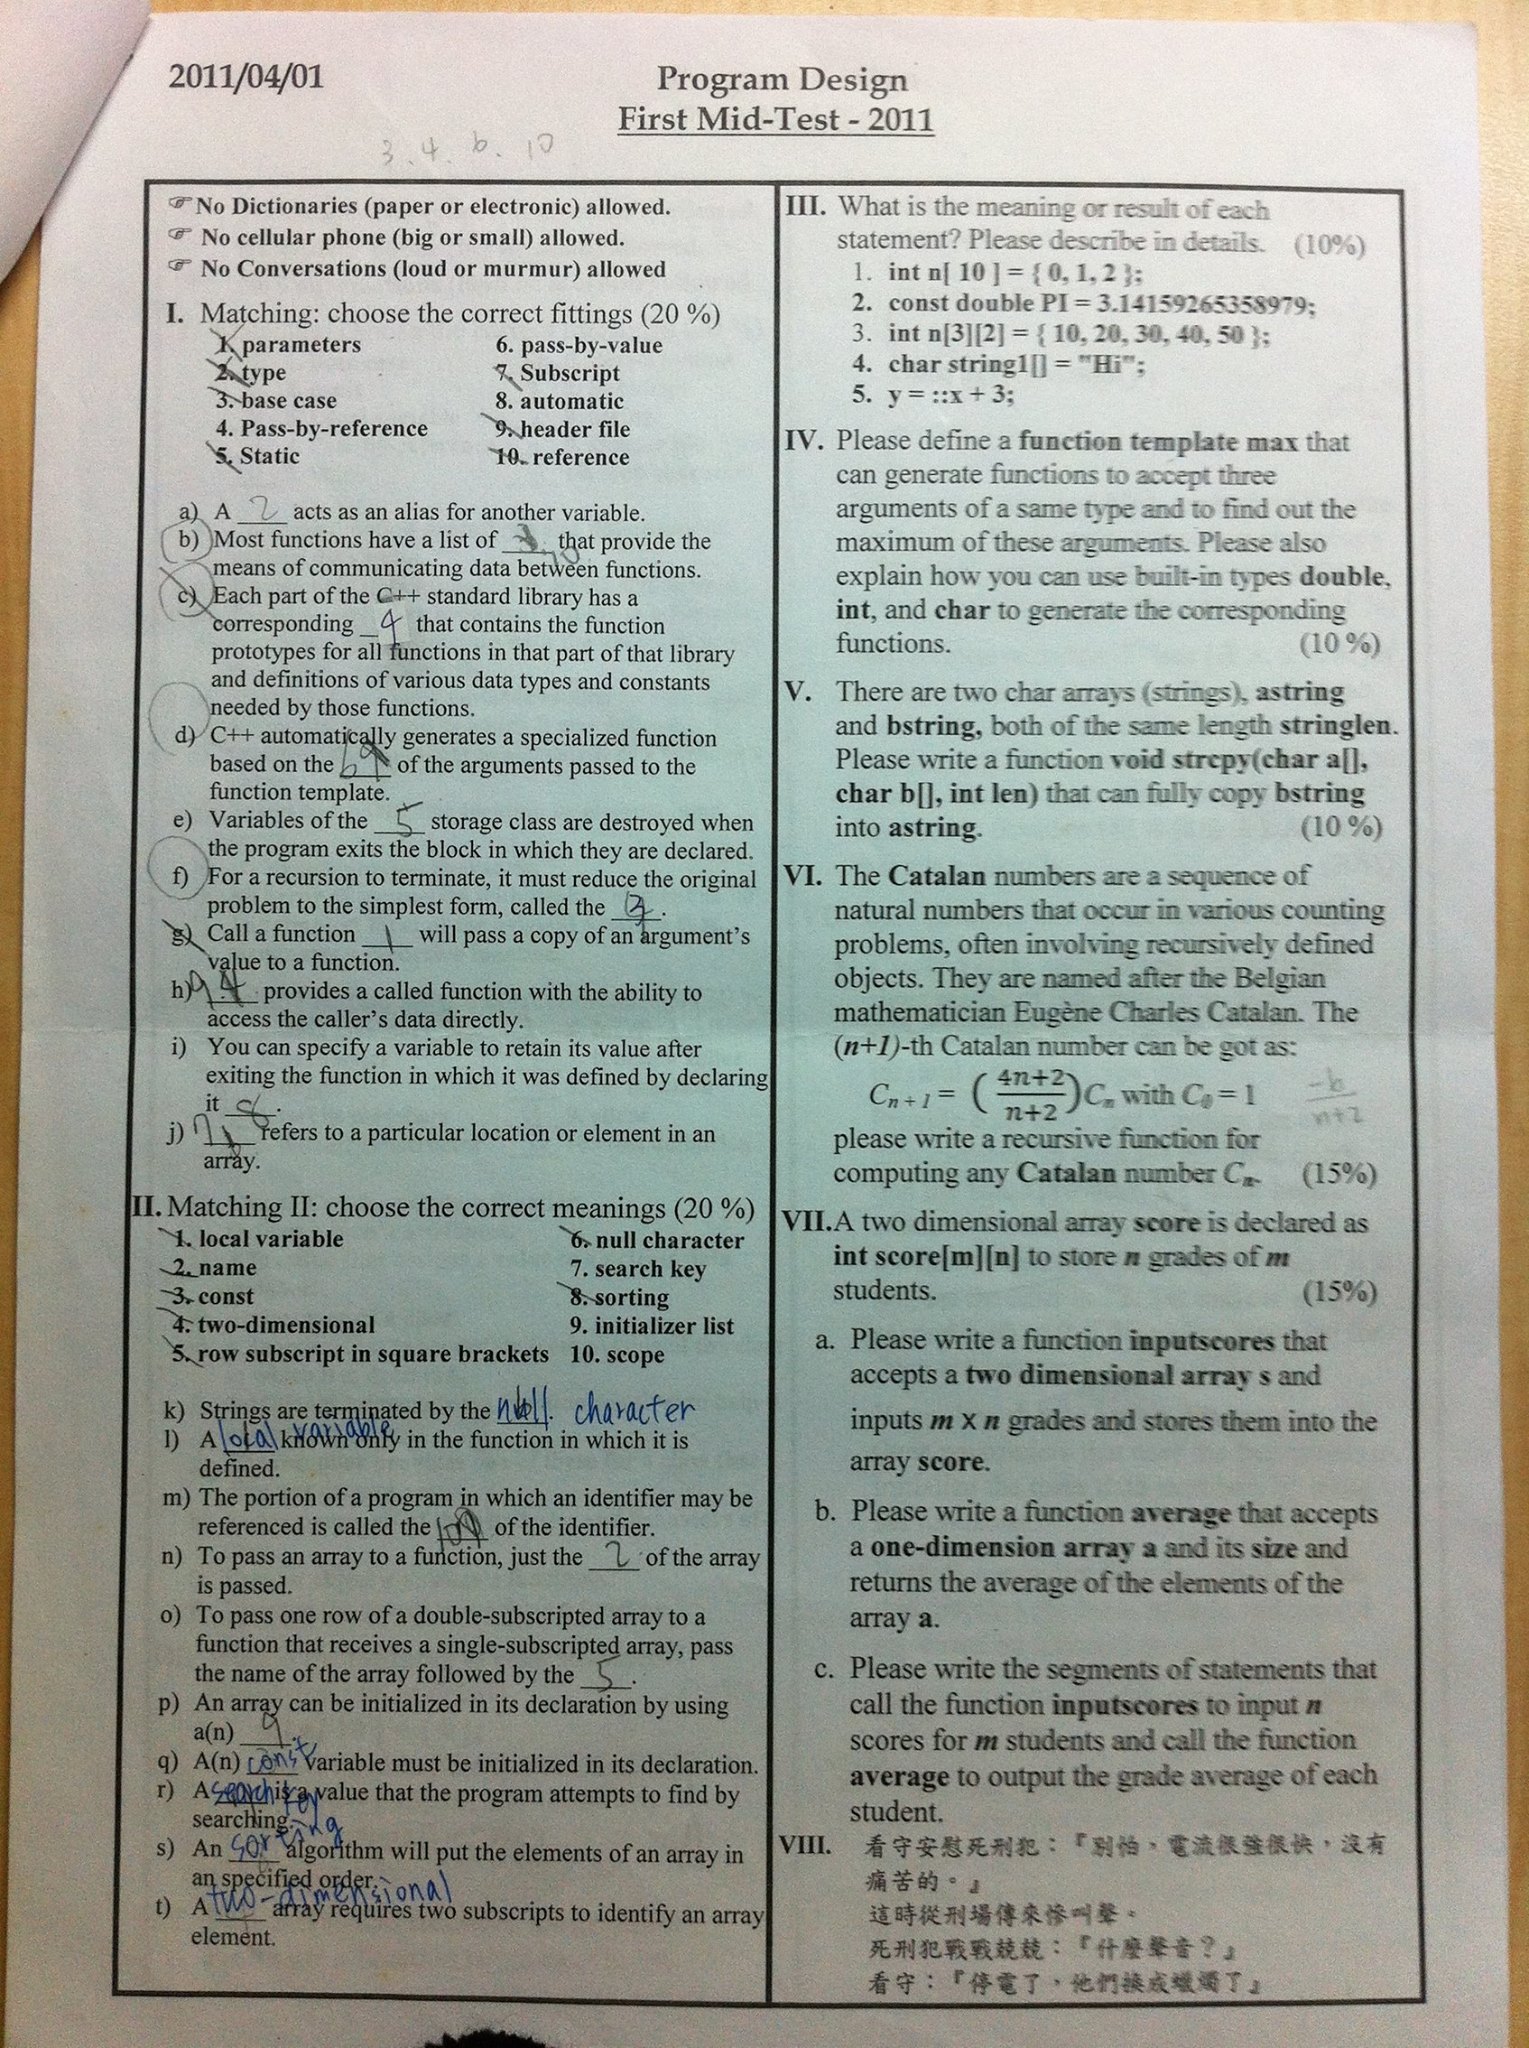 2011/04/01
Program Design
First Mid-Test - 2011
3. 4. 6. 10
☞ No Dictionaries (paper or electronic) allowed.
☞ No cellular phone (big or small) allowed.
☞ No Conversations (loud or murmur) allowed
I. Matching: choose the correct fittings (20 %)
1. parameters 6. pass-by-value
2. type 7. Subscript
3. base case 8. automatic
4. Pass-by-reference 9. header file
5. Static 10. reference
a) A 2 acts as an alias for another variable.
b) Most functions have a list of ____ that provide the
means of communicating data between functions.
c) Each part of the C++ standard library has a
corresponding 4 that contains the function
prototypes for all functions in that part of that library
and definitions of various data types and constants
needed by those functions.
d) C++ automatically generates a specialized function
based on the ____ of the arguments passed to the
function template.
e) Variables of the 5 storage class are destroyed when
the program exits the block in which they are declared.
f) For a recursion to terminate, it must reduce the original
problem to the simplest form, called the ____.
g) Call a function 1 will pass a copy of an argument's
value to a function.
h) ____ provides a called function with the ability to
access the caller's data directly.
i) You can specify a variable to retain its value after
exiting the function in which it was defined by declaring
it 8.
j) ____ refers to a particular location or element in an
array.
II. Matching II: choose the correct meanings (20 %)
1. local variable 6. null character
2. name 7. search key
3. const 8. sorting
4. two-dimensional 9. initializer list
5. row subscript in square brackets 10. scope
k) Strings are terminated by the null. character
l) A local variable known only in the function in which it is
defined.
m) The portion of a program in which an identifier may be
referenced is called the 10 of the identifier.
n) To pass an array to a function, just the 2 of the array
is passed.
o) To pass one row of a double-subscripted array to a
function that receives a single-subscripted array, pass
the name of the array followed by the 5.
p) An array can be initialized in its declaration by using
a(n) 9.
q) A(n) const variable must be initialized in its declaration.
r) A search key is a value that the program attempts to find by
searching.
s) An sorting algorithm will put the elements of an array in
an specified order.
t) A two-dimensional array requires two subscripts to identify an array
element.
III. What is the meaning or result of each
statement? Please describe in details. (10%)
1. int n[ 10 ] = { 0, 1, 2 };
2. const double PI = 3.14159265358979;
3. int n[3][2] = { 10, 20, 30, 40, 50 };
4. char string1[] = "Hi";
5. y = ::x + 3;
IV. Please define a function template max that
can generate functions to accept three
arguments of a same type and to find out the
maximum of these arguments. Please also
explain how you can use built-in types double,
int, and char to generate the corresponding
functions. (10 %)
V. There are two char arrays (strings), astring
and bstring, both of the same length stringlen.
Please write a function void strcpy(char a[],
char b[], int len) that can fully copy bstring
into astring. (10 %)
VI. The Catalan numbers are a sequence of
natural numbers that occur in various counting
problems, often involving recursively defined
objects. They are named after the Belgian
mathematician Eugène Charles Catalan. The
(n+1)-th Catalan number can be got as:
Cn+1 = (4n+2 / n+2) Cn with C0 = 1
-6 / n+2
please write a recursive function for
computing any Catalan number Cn. (15%)
VII. A two dimensional array score is declared as
int score[m][n] to store n grades of m
students. (15%)
a. Please write a function inputscores that
accepts a two dimensional array s and
inputs m X n grades and stores them into the
array score.
b. Please write a function average that accepts
a one-dimension array a and its size and
returns the average of the elements of the
array a.
c. Please write the segments of statements that
call the function inputscores to input n
scores for m students and call the function
average to output the grade average of each
student.
VIII. 看守安慰死刑犯：『別怕，電流很強很快，沒有
痛苦的。』
這時從刑場傳來慘叫聲。
死刑犯戰戰兢兢：『什麼聲音？』
看守：『停電了，他們換成蠟燭了』